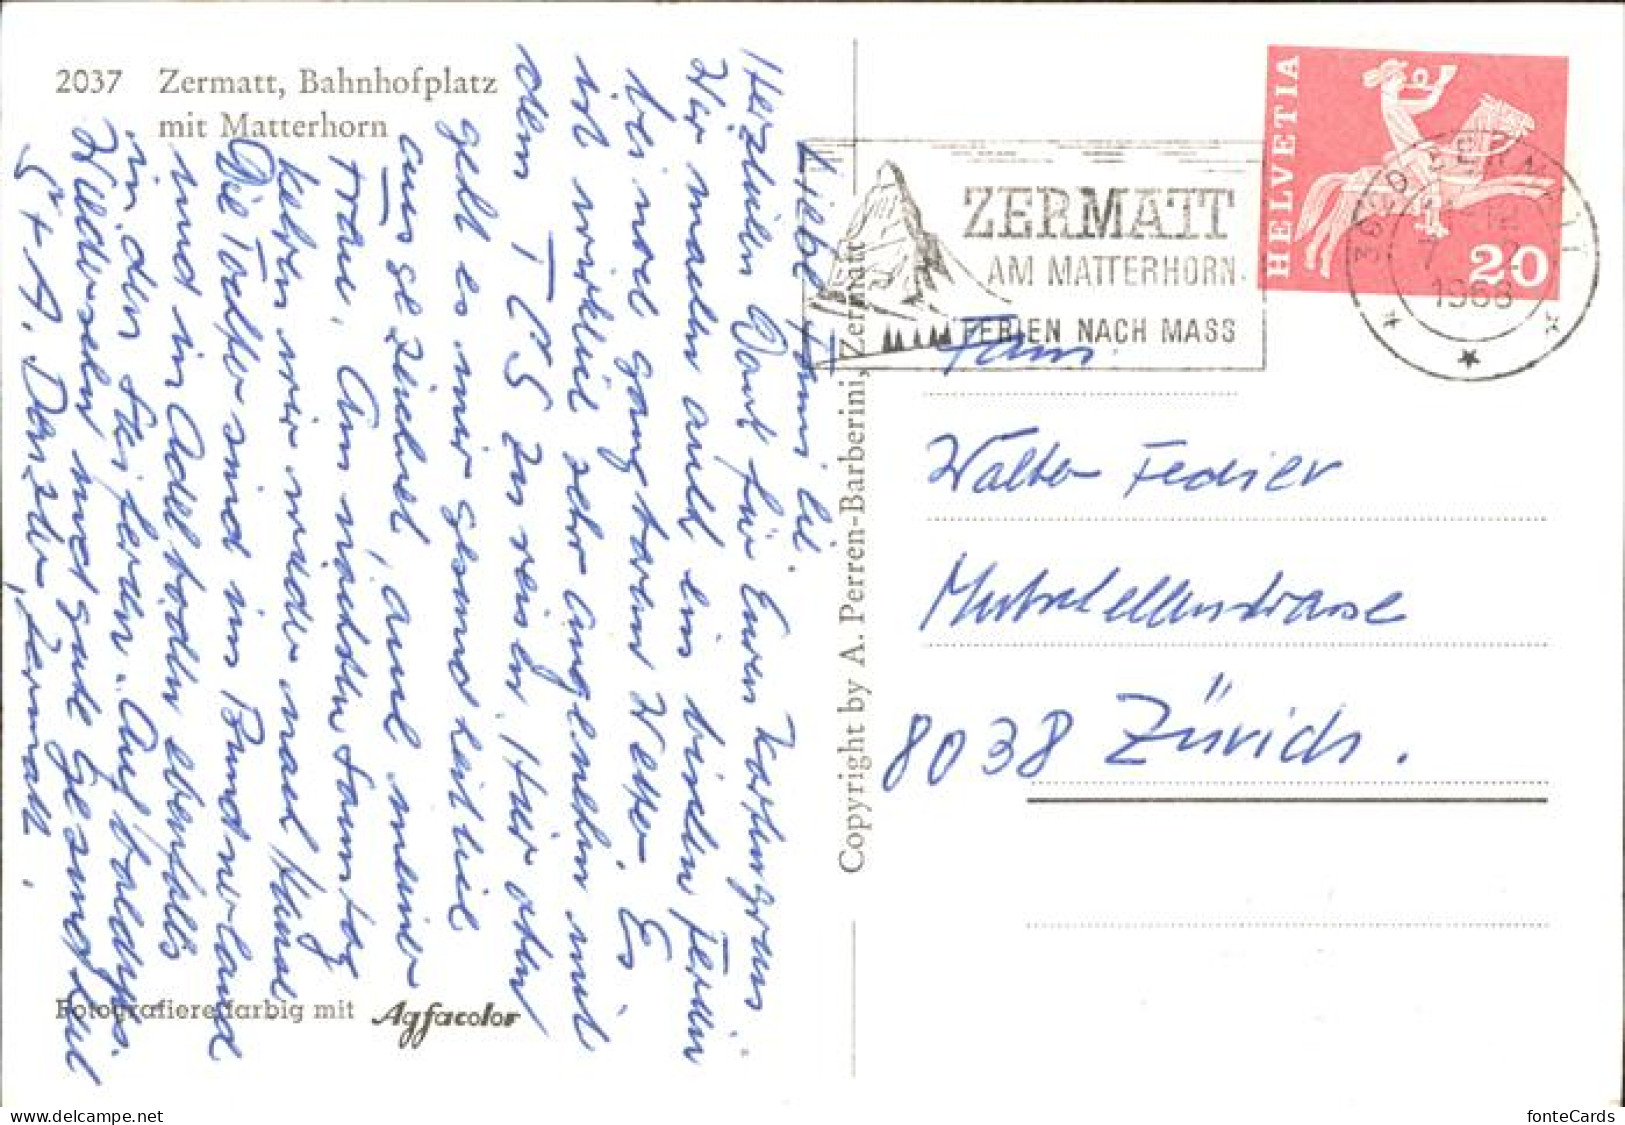 2037 Zermatt, Bahnhofplatz
mit Matterhorn
Liebe Fam. bei.
Herzlichen Dank für Euren Kartengruss
Wir machen auch ein bisch Ferien
bei noch ganz barem Wetter. Es
ist wirklich sehr angenehm mit
dem TCS zu reisen. Hier oben
geht es mir gesundheitlich
ausgezeichnet, auch meiner
Frau. Am nächsten Samstag
kehren wir wieder nach Hause
Die Tochter sind im Bündnerland
und in Adelboden ebenfalls
in den Skiferien. Auf baldiges
Wiedersehn und gute Gesundheit
Zermatt.
Fotografiere farbig mit Agfacolor
Copyright by A. Perren-Barberini, Zermatt
ZERMATT
AM MATTERHORN
FERIEN NACH MASS
HELVETIA
20
3920 ZERMATT
1968
Fam.
Walter Fedier
Mutschellenstrasse
8038 Zürich.
fonteCards
delcampe.net